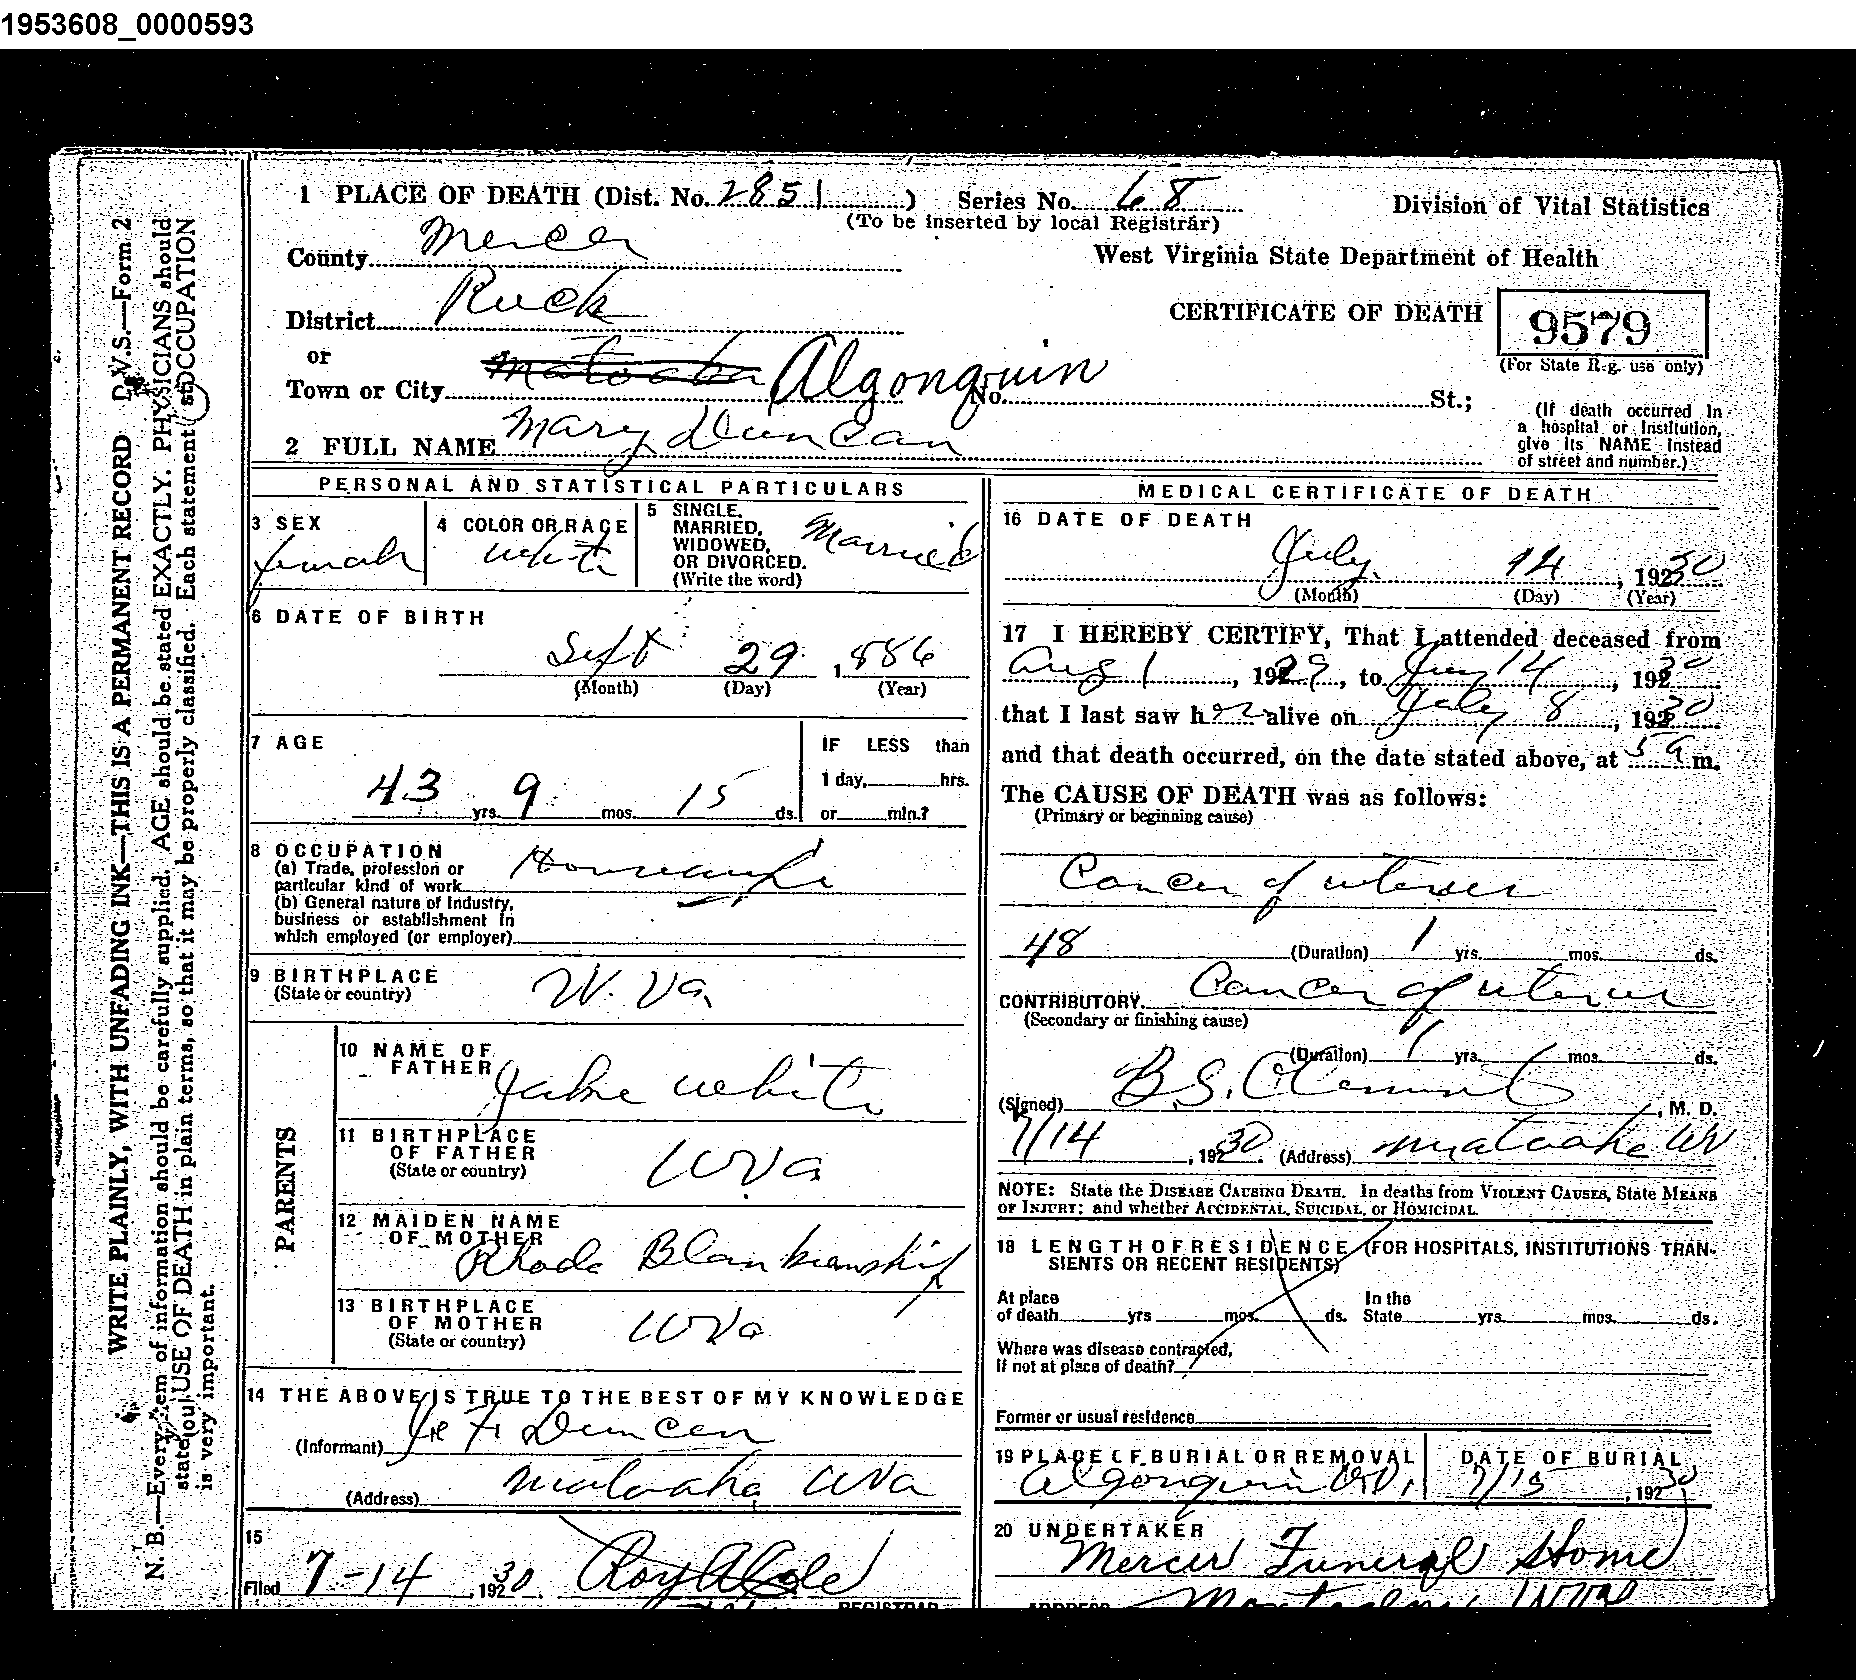 1953608_0000593
1 PLACE OF DEATH (Dist. No. 2851) Series No. 68 Division of Vital Statistics
(To be inserted by local Registrar)
County Mercer West Virginia State Department of Health
District Rock CERTIFICATE OF DEATH 9579
(For State Reg. use only)
or
Town or City Matoaka Algonquin No. St.;
(If death occurred in
a hospital or Institution,
give its NAME instead
of street and number.)
2 FULL NAME Mary Duncan
PERSONAL AND STATISTICAL PARTICULARS
3 SEX
female
4 COLOR OR RACE
white
5 SINGLE,
MARRIED,
WIDOWED,
OR DIVORCED.
(Write the word)
Married
6 DATE OF BIRTH
Sept 29, 1886
(Month) (Day) (Year)
7 AGE
43 yrs. 9 mos. 15 ds.
IF LESS than
1 day, hrs.
or min.?
8 OCCUPATION
(a) Trade, profession or
particular kind of work Housewife
(b) General nature of Industry,
business or establishment in
which employed (or employer)
9 BIRTHPLACE
(State or country)
W. Va.
PARENTS
10 NAME OF
FATHER Jake White
11 BIRTHPLACE
OF FATHER
(State or country)
WVa
12 MAIDEN NAME
OF MOTHER
Rhoda Blankenship
13 BIRTHPLACE
OF MOTHER
(State or country)
WVa
14 THE ABOVE IS TRUE TO THE BEST OF MY KNOWLEDGE
(Informant) Duncan
(Address) Matoaka, WVa
15
Filed 7-14, 1930
REGISTRAR
MEDICAL CERTIFICATE OF DEATH
16 DATE OF DEATH
July 14, 19230
(Month) (Day) (Year)
17 I HEREBY CERTIFY, That I attended deceased from
Aug 1, 1929, to July 14, 19230
that I last saw her alive on July 8, 19230
and that death occurred, on the date stated above, at 5 a m.
The CAUSE OF DEATH was as follows:
(Primary or beginning cause)
Cancer of uterus
48 (Duration) 1 yrs. mos. ds.
CONTRIBUTORY Cancer of uterus
(Secondary or finishing cause)
(Duration) 1 yrs. mos. ds.
(Signed) B.S. Clements, M. D.
7/14, 19230. (Address) Matoaka WV
NOTE: State the DISEASE CAUSING DEATH. In deaths from VIOLENT CAUSES, State MEANS
OF INJURY; and whether ACCIDENTAL, SUICIDAL, or HOMICIDAL.
18 LENGTH OF RESIDENCE (FOR HOSPITALS, INSTITUTIONS TRAN-
SIENTS OR RECENT RESIDENTS)
At place
of death yrs. mos. ds. In the
State yrs. mos. ds.
Where was disease contracted,
If not at place of death?
Former or usual residence
19 PLACE OF BURIAL OR REMOVAL
Algonquin WV.
DATE OF BURIAL
7/15, 19230
20 UNDERTAKER
Mercer Funeral Home
ADDRESS
WRITE PLAINLY, WITH UNFADING INK—THIS IS A PERMANENT RECORD D.V.S.—Form 2
N. B.—Every item of information should be carefully supplied. AGE should be stated EXACTLY. PHYSICIANS should
state CAUSE OF DEATH in plain terms, so that it may be properly classified. Each statement of OCCUPATION
is very important.